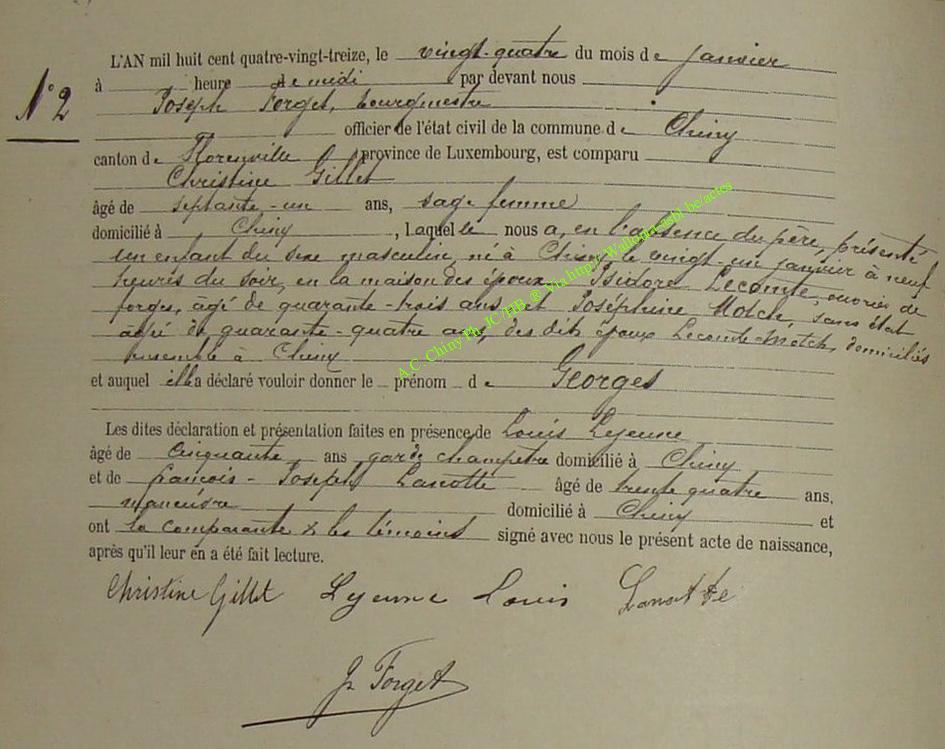 L'AN mil huit cent quatre-vingt-treize, le vingt-quatre du mois de janvier
N° 2
à heure de midi par devant nous
Joseph Forget, bourgmestre
officier de l'état civil de la commune de Chiny
canton de Florenville province de Luxembourg, est comparu
Christine Gillet
âgé de septante-un ans, sage femme
domicilié à Chiny, laquelle nous a, en l'absence du père, présenté
un enfant du sexe masculin, né à Chiny le vingt-un janvier à neuf
heures du soir, en la maison des époux Isidore Lecomte, ouvrier de
forges, âgé de quarante-trois ans et Joséphine Motch, sans état
agée de quarante-quatre ans, des dits époux Lecomte-Motch, domiciliés
ensemble à Chiny
et auquel elle a déclaré vouloir donner le prénom de Georges
Les dites déclaration et présentation faites en présence de Louis Lejeune
âgé de cinquante ans garde champetre domicilié à Chiny
et de françois-Joseph Lanotte âgé de trente quatre ans,
manœuvre domicilié à Chiny et
ont la comparante & les témoins signé avec nous le présent acte de naissance,
après qu'il leur en a été fait lecture.
Christine Gillet Lejeune Louis Lanotte
J. Forget
A.C. Chiny Ph. JC/HB ® Via http://Wallonia-asbl.be/actes